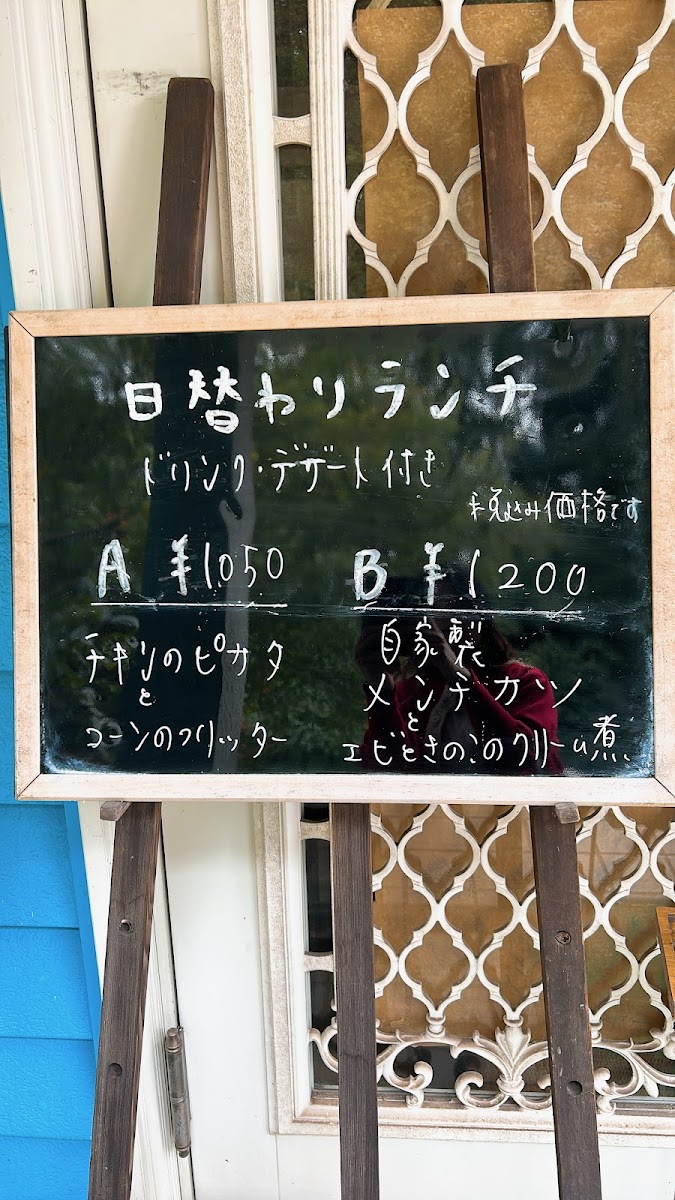 日替わりランチ
ドリンク・デザート付き
税込み価格です
A ¥1050
チキンのピカタ
と
コーンのフリッター
B ¥1200
自家製
メンチカツ
と
エビときのこのクリーム煮